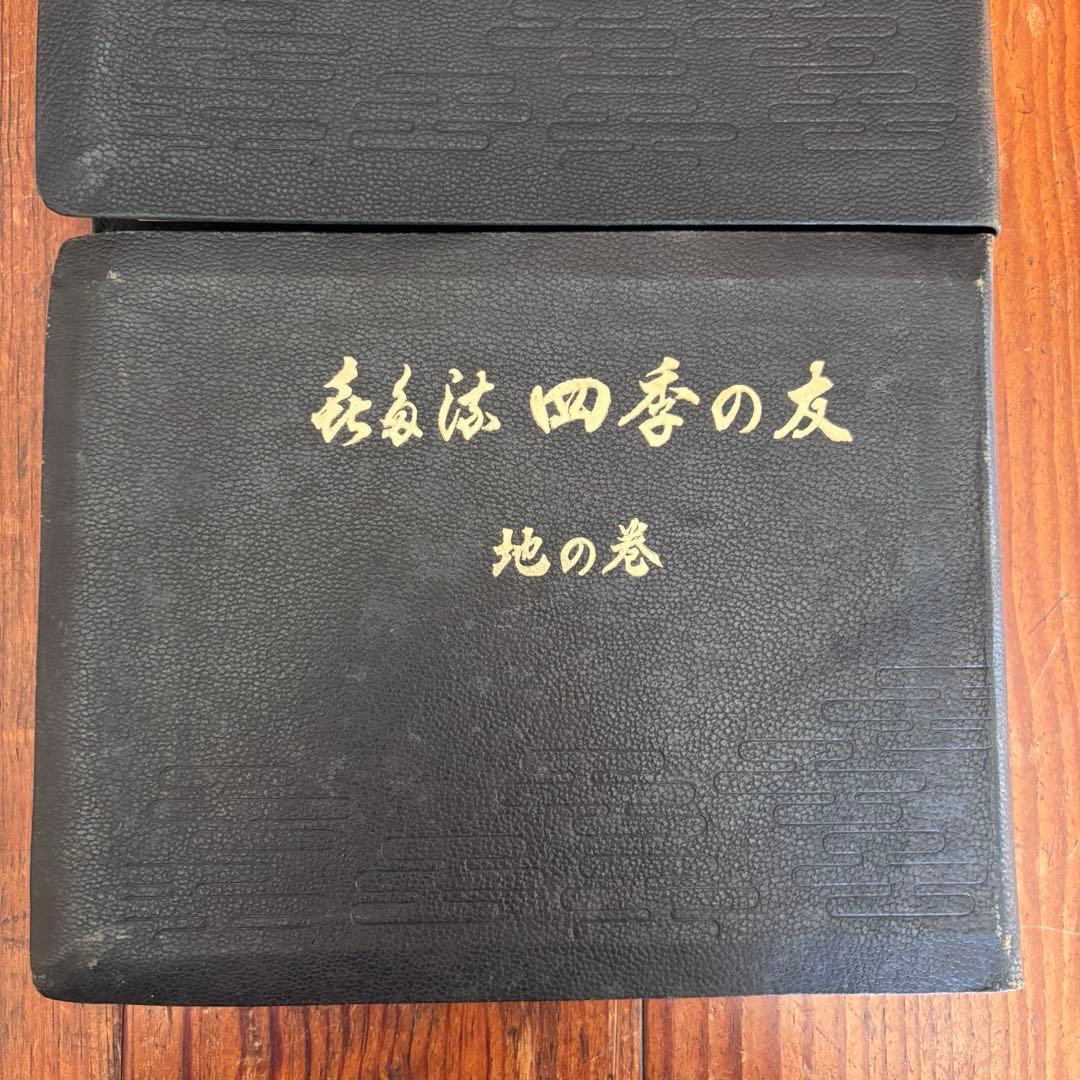 喜多流 四季の友
地の巻